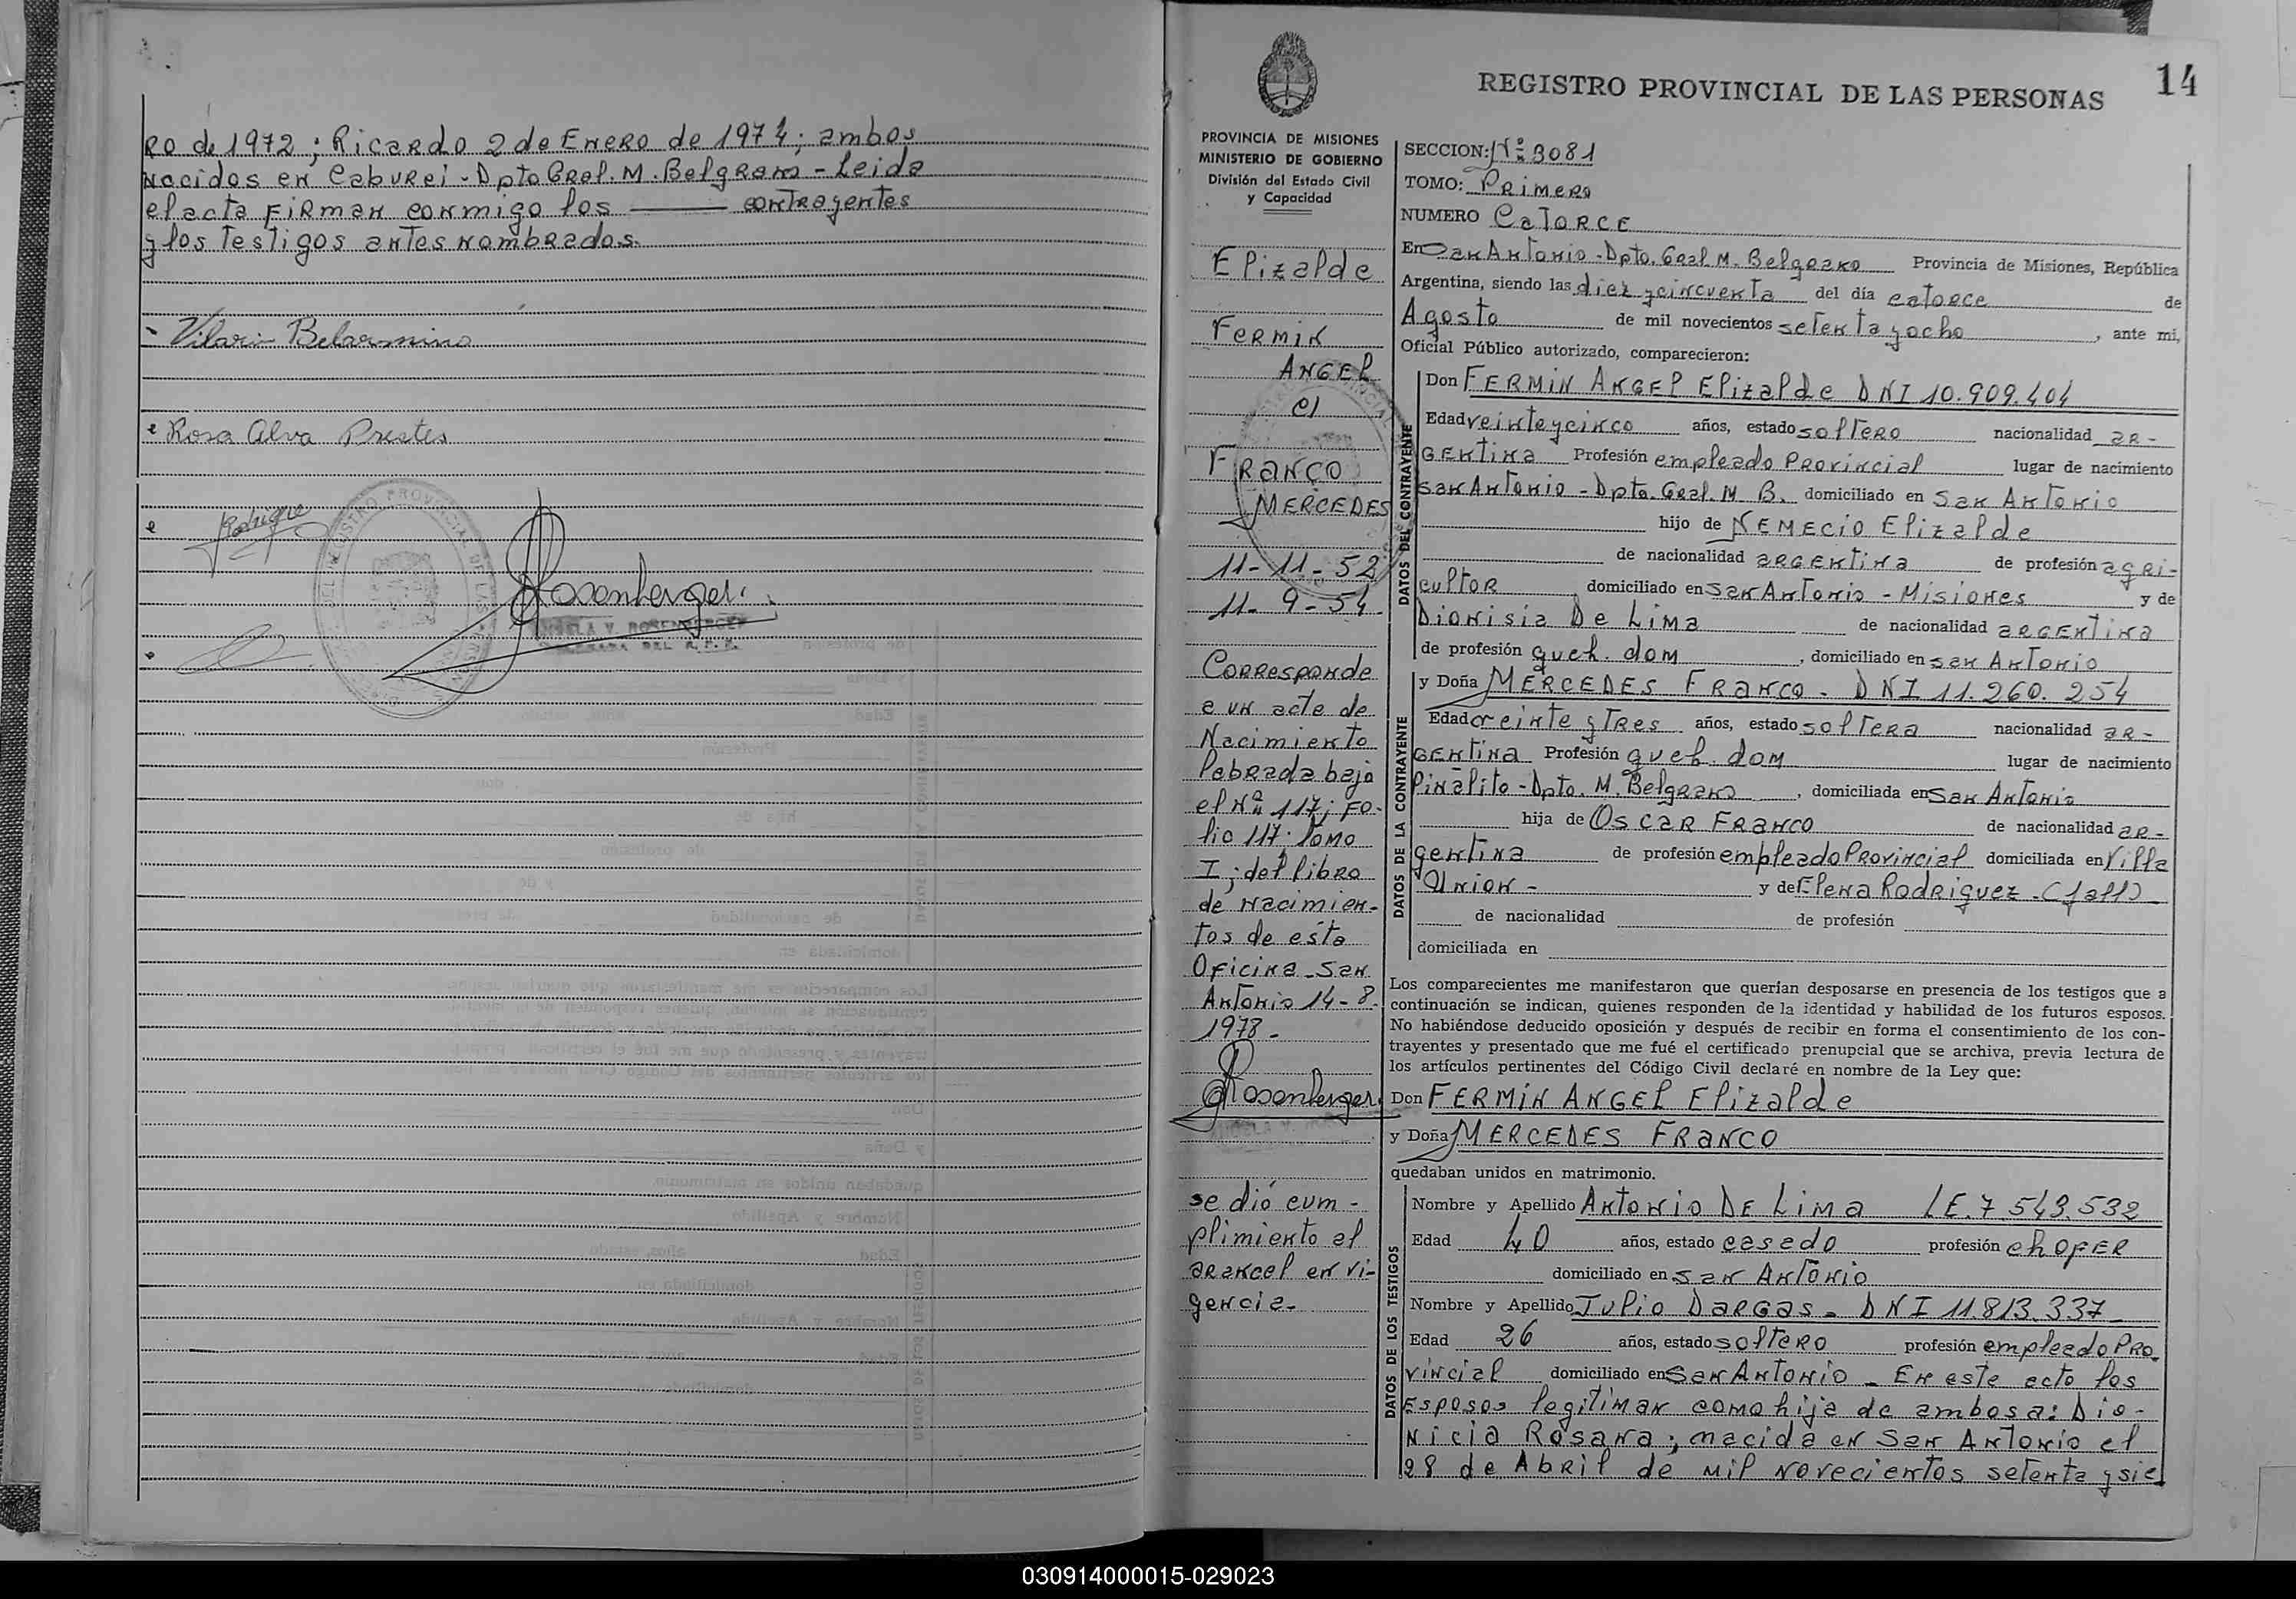 RO de 1972; Ricardo 2 de Enero de 1974; ambos
Nacidos en Caburei - Dpto Gral. M. Belgrano - Leida
el acta Firman conmigo los —— contrayentes
y los Testigos antes nombrados.
Vilari Belarmino
Rosa Alva Prestes
Rodrigue
Rosenberger.
ANGELA V. ROSENBERGER
DEL R. P. P.
14
REGISTRO PROVINCIAL DE LAS PERSONAS
PROVINCIA DE MISIONES
MINISTERIO DE GOBIERNO
División del Estado Civil
y Capacidad
Elizalde
Fermin
ANGEL
c/
FRANCO
MERCEDES
11-11-52
11-9-54
Corresponde
a un acta de
Nacimiento
labrada bajo
el Nº 117; Fo-
lio 117; Tomo
I; del libro
de nacimien-
tos de esta
Oficina - San
Antonio 14-8-
1978-
Rosenberger
se dió cum-
plimiento al
arancel en vi-
gencia-
SECCION: Nº 3081
TOMO: Primero
NUMERO CATORCE
En San Antonio - Dpto. Gral M. Belgrano Provincia de Misiones, República
Argentina, siendo las diez y cincuenta del día catorce de
Agosto de mil novecientos setenta y ocho, ante mi,
Oficial Público autorizado, comparecieron:
DATOS DEL CONTRAYENTE
Don FERMIN ANGEL Elizalde DNI 10.909.404
Edad veinteycinco años, estado soltero nacionalidad ar-
gentina Profesión empleado Provincial lugar de nacimiento
San Antonio - Dpto. Gral. M. B. domiciliado en San Antonio
hijo de NEMECIO Elizalde
de nacionalidad argentina de profesión agri-
cultor domiciliado en San Antonio - Misiones y de
Dionisia De Lima de nacionalidad argentina
de profesión queh. dom, domiciliado en san Antonio
DATOS DE LA CONTRAYENTE
y Doña MERCEDES FRANCO - DNI 11.260.254
Edad veinte y Tres años, estado soltera nacionalidad ar-
gentina Profesión queh. dom lugar de nacimiento
Pinalito - Dpto. M. Belgrano, domiciliada en San Antonio
hija de Oscar Franco de nacionalidad ar-
gentina de profesión empleado Provincial domiciliada en Villa
Union - y de Elena Rodriguez - (fall)
de nacionalidad de profesión
domiciliada en
Los comparecientes me manifestaron que querían desposarse en presencia de los testigos que a
continuación se indican, quienes responden de la identidad y habilidad de los futuros esposos.
No habiéndose deducido oposición y después de recibir en forma el consentimiento de los con-
trayentes y presentado que me fué el certificado prenupcial que se archiva, previa lectura de
los artículos pertinentes del Código Civil declaré en nombre de la Ley que:
Don FERMIN ANGEL Elizalde
y Doña MERCEDES FRANCO
quedaban unidos en matrimonio.
DATOS DE LOS TESTIGOS
Nombre y Apellido Antonio DE Lima LE. 7.543.532
Edad 40 años, estado casado profesión chOFER
domiciliado en San Antonio
Nombre y Apellido Julio Dargas - DNI 11.813.337
Edad 26 años, estado soltero profesión empleado Pro-
vincial domiciliado en San Antonio - En este acto los
Esposos legitiman como hija de ambos a: Dio-
nicia Rosana; nacida en San Antonio el
28 de Abril de mil novecientos setenta y sie
030914000015-029023